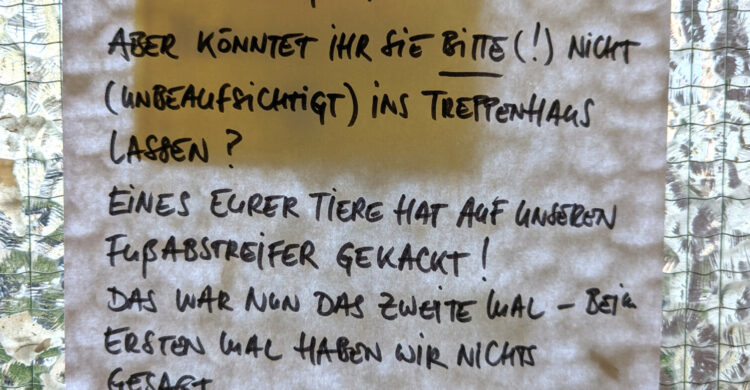 ABER KÖNNTET IHR SIE BITTE (!) NICHT
(UNBEAUFSICHTIGT) INS TREPPENHAUS
LASSEN?
EINES EURER TIERE HAT AUF UNSEREN
FUßABSTREIFER GEKACKT!
DAS WAR NUN DAS ZWEITE MAL – BEIM
ERSTEN MAL HABEN WIR NICHTS
GESAGT